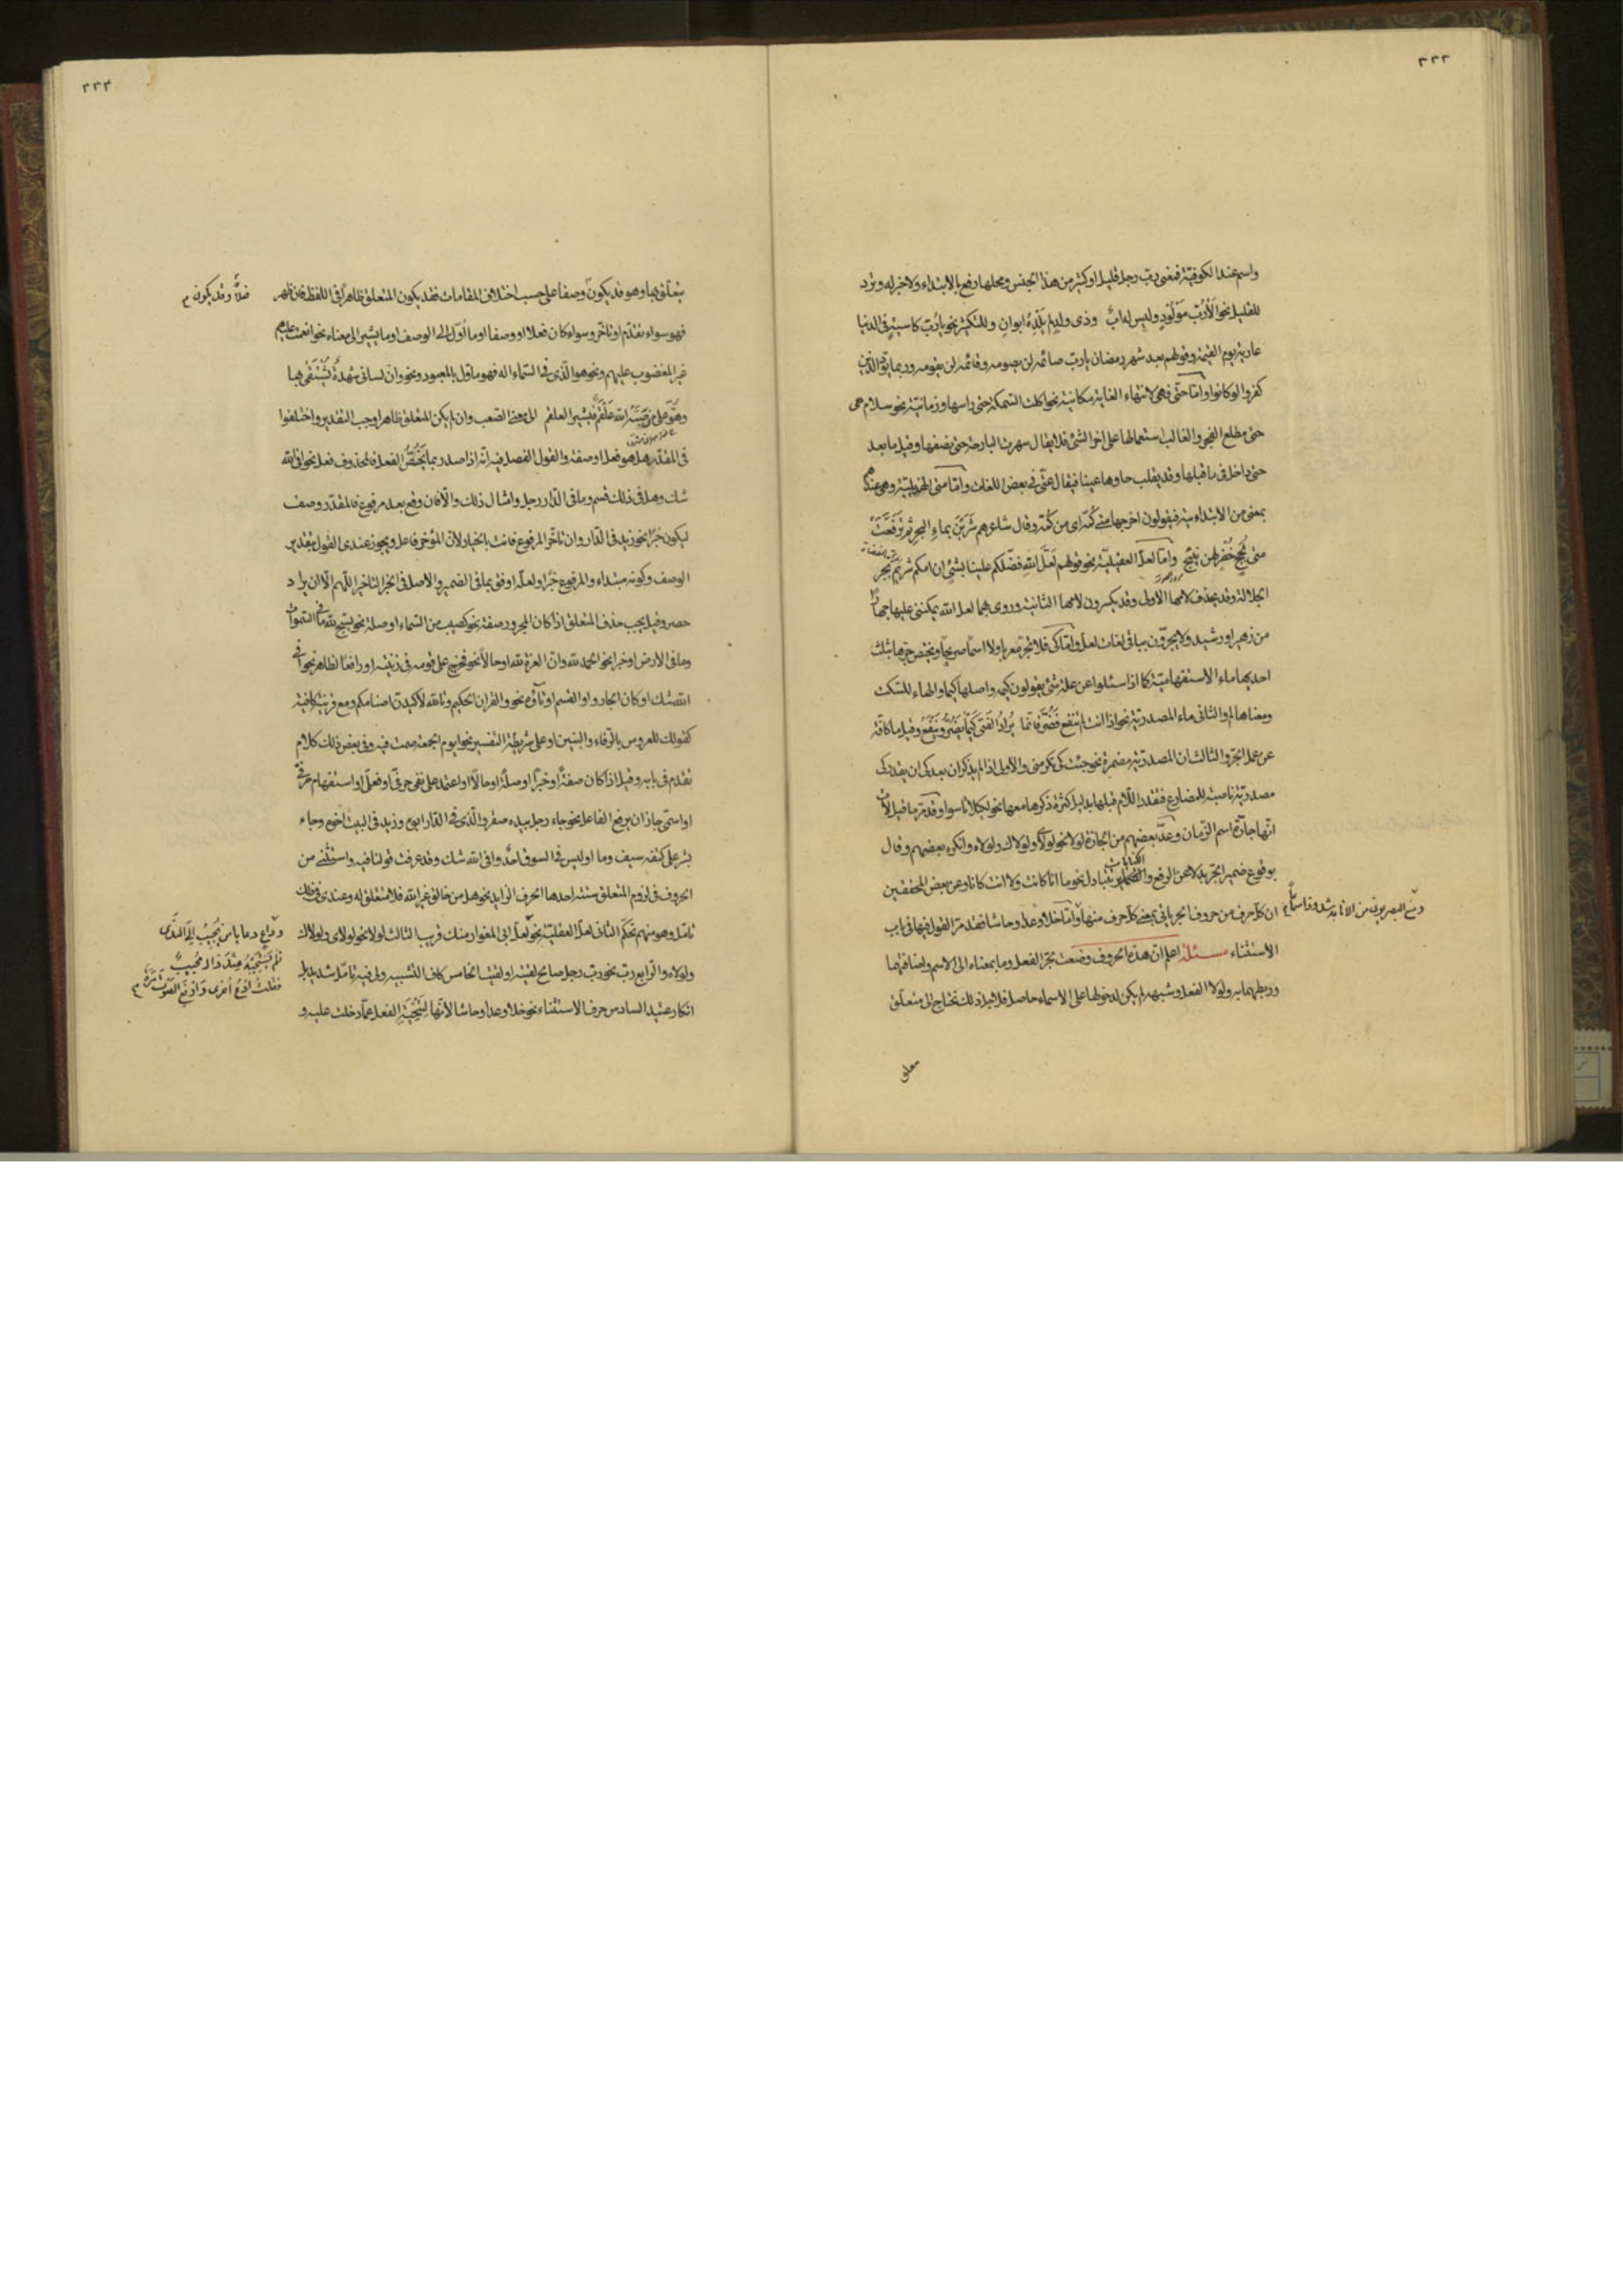 ٢٣٣
واسم عند الكوفية فمعنى رب رجل قليل او كثير من هذا الجنس ومحلها رفع بالابتداء ولا خبر له وترد
للتقليل نحو ألا رُبّ مَوْلُودٍ وليس له ابٌ وذى ولدٍ لم يَلْدَهُ ابوانِ وللتكثير نحو يا رُبّ كاسيةٍ فى الدنيا
عارية يوم القيمة وقولهم بعد شهر رمضان يا رب صائمه لن يصومه وقائمه لن يقومه وربما يودّ الذين
كفروا لو كانوا وامّا حتّى فهى لانتهاء الغاية مكانية نحو اكلت السمكة حتى راسها وزمانية نحو سلام هى
حتى مطلع الفجر والغالب استعمالها على اخر الشئ فلا يقال سهرت البارحة حتى نصفها وقيل ما بعد
حتى داخل فى ما قبلها وقد يقلب حاوها عينا فيقال عتّى فى بعض اللغات وامّا متى الهذيلية وهى عندهم
بمعنى من الابتدائية فيقولون اخرجها متى كُمّه اى من كُمّه وقال شاعرهم شَرِبْنَ بماءِ البحرِ ثم تَرَفَّعَتْ
متى لُجَجٍ خُضْرٍ لهن نئيج وامّا لعلّ العقيلية نحو قولهم لَعَلَّ اللهِ فضّلكم علينا بشئٍ ان امكم شريم بجر
الجلالة وقد يحذف لامها الاولى وقد يكسرون لامها الثانية وروى بهما لعل الله يمكننى عليها جهارًا
من زهير او رشيد ولا يجرّون بباقى لغات لعل وامّا كى فلا تجر معربا ولا اسما صريحا ويختص جرها بثلث
احديها ماء الاستفهامية كما اذا سئلوا عن علة شئ يقولون كيمه واصلها كيما والهاء للسكت
ومعناها لم والثانى ماء المصدرية نحو اذا انت لم تنفع فَضُرَّ فانما يُرادُ الفَتَى كَيْما يَضُرُّ ويَنْفَعُ وقيل ما كافّة
عن عمل الجر والثالث ان المصدرية مضمرة نحو جئت كى تكرمنى والاولى اذا لم يذكر ان بعد كى ان يقدر كى
مصدرية ناصبة للمضارع فتقدر اللام قبلها بدليل كثرة ذكرها معها نحو لكيلا تاسوا وقد مرّ ما قبل الآن
انها جارّة اسم الزمان وعدّ بعضهم من الجارة لولا نحو لولاى ولولاك ولولاه وانكره بعضهم وقال
بوقوع ضمير الجر بدلا عن الرفع والضمائر يتبادل نحو ما انا كانت ولا انت كانا وعن بعض المحققين
ومنع البصريون من الا شذوذا
ان كل حرف من حروف الجر ياتى بمعنى كل حرف منها وامّا خلا وعدا وحاشا فقد مرّ القول فيها فى باب
الاستثناء مسئلة اعلم ان هذه الحروف وضعت بجر الفعل وما بمعناه الى الاسم وايضافهما
وربطهما به ولولا الفعل وشبهه لم يكن لدخولها على الاسماء حاصل فلاجل ذلك تحتاج الى متعلق
٢٣٤
يتعلق بها وهو قد يكون وصفا على حسب اختلاف المقامات فقد يكون المتعلق ظاهراً فى اللفظ فان ظهر
فعلا وقد يكون م
فهو سواء تقدّم او تاخّر وسواء كان فعلا او وصفا او ما اُوّل الى الوصف او ما يشير الى معناه نحو انعمت عليهم
غير المغضوب عليهم ونحو هو الّذى فى السّماء اله فهو ماوّل بالمعبود ونحو وان لسانى شهدةٌ يُشْتَفى بها
وهُوَّ على من صَبَّهُ اللهُ عَلْقَمٌ فيشير العلقم الى معنى الصعب وان لم يكن المتعلق ظاهرا وجب التقدير واختلفوا
فى المقدّر هل هو فعل او صفة والقول الفصل فيه انّه اذا صدر بما يَخْتَصُّ الفعل فالمحذوف فعل نحو افى الله
شك وهل فى ذلك قسم وما فى الدّار رجل وامثال ذلك والّا فان وقع بعد مرفوع فالمقدّر وصف
ليكون خبرًا نحو زيد فى الدّار وان تاخّر المرفوع فانت بالخيار لانّ المؤخر فاعل ويجوز عندى القول بتقدير
الوصف وكونه مبتداء والمرفوع خبرًا ولعلّه اوفق بما فى الضمير والاصل فى الخبر التاخير اللّهم الّا ان يراد
حصر وقيل يجب حذف المتعلق اذا كان المجرور صفة نحو كصيب من السّماء او صلة نحو يسبح لله ما فى السّموات
وما فى الارض او خبرا نحو الحمد لله وان العزة لله او حالا نحو فخرج على قومه فى زينته او رافعا لظاهر نحو افى
الله شك او كان الجار واو القسم او تاؤه نحو والقران الحكيم وتالله لاكيدنّ اصنامكم ومع قرينة كافية
كقولك للعروس بالرّفاء والبنين او على شريطة التفسير نحو ايوم الجمعة صمت فيه وفى بعض ذلك كلام
تقدم فى بابه وقيل اذا كان صفةً او خبرًا او صلةً او حالًا او اعتمد على نفى حرفى او فعلى او استفهام حرفى
او اسمى جاز ان يرفع الفاعل نحو جاء رجل بيده صقر والّذى فى الدّار ابوه وزيد فى البيت اخوه وجاء
بشر على كتفه سيف وما او ليس فى السوق احدٌ وافى الله شك وقد عرفت قولنا فيه واستثنى من
الحروف فى لزوم المتعلق ستة احدها الحرف الزايد نحو هل من خالق غير الله فلا متعلق له وعندى فى ذلك
تامّل وهو منهم تحكّم الثانى لعلّ العقيلية نحو لعلّ ابى المغوار منك قريب الثالث لولا نحو لولاى ولولاك
وداعٍ دعا يا من يُجيبُ الى النّدى
فلم يَسْتَجِبْهُ عِنْدَ ذاك مُجيبٌ
فقلت ادعُ اُخرى وارفع الصوت
ولولاه والرابع رب نحو رب رجل صالح لقيته او لقيت الخامس كاف التشبيه ولى فيه تامّل شديد بل
انكار عتيد السادس حرف الاستثناء نحو خلا وعدا وحاشا لانّها لِتَنْحِيَةِ الفعل عمّا دخلت عليه و